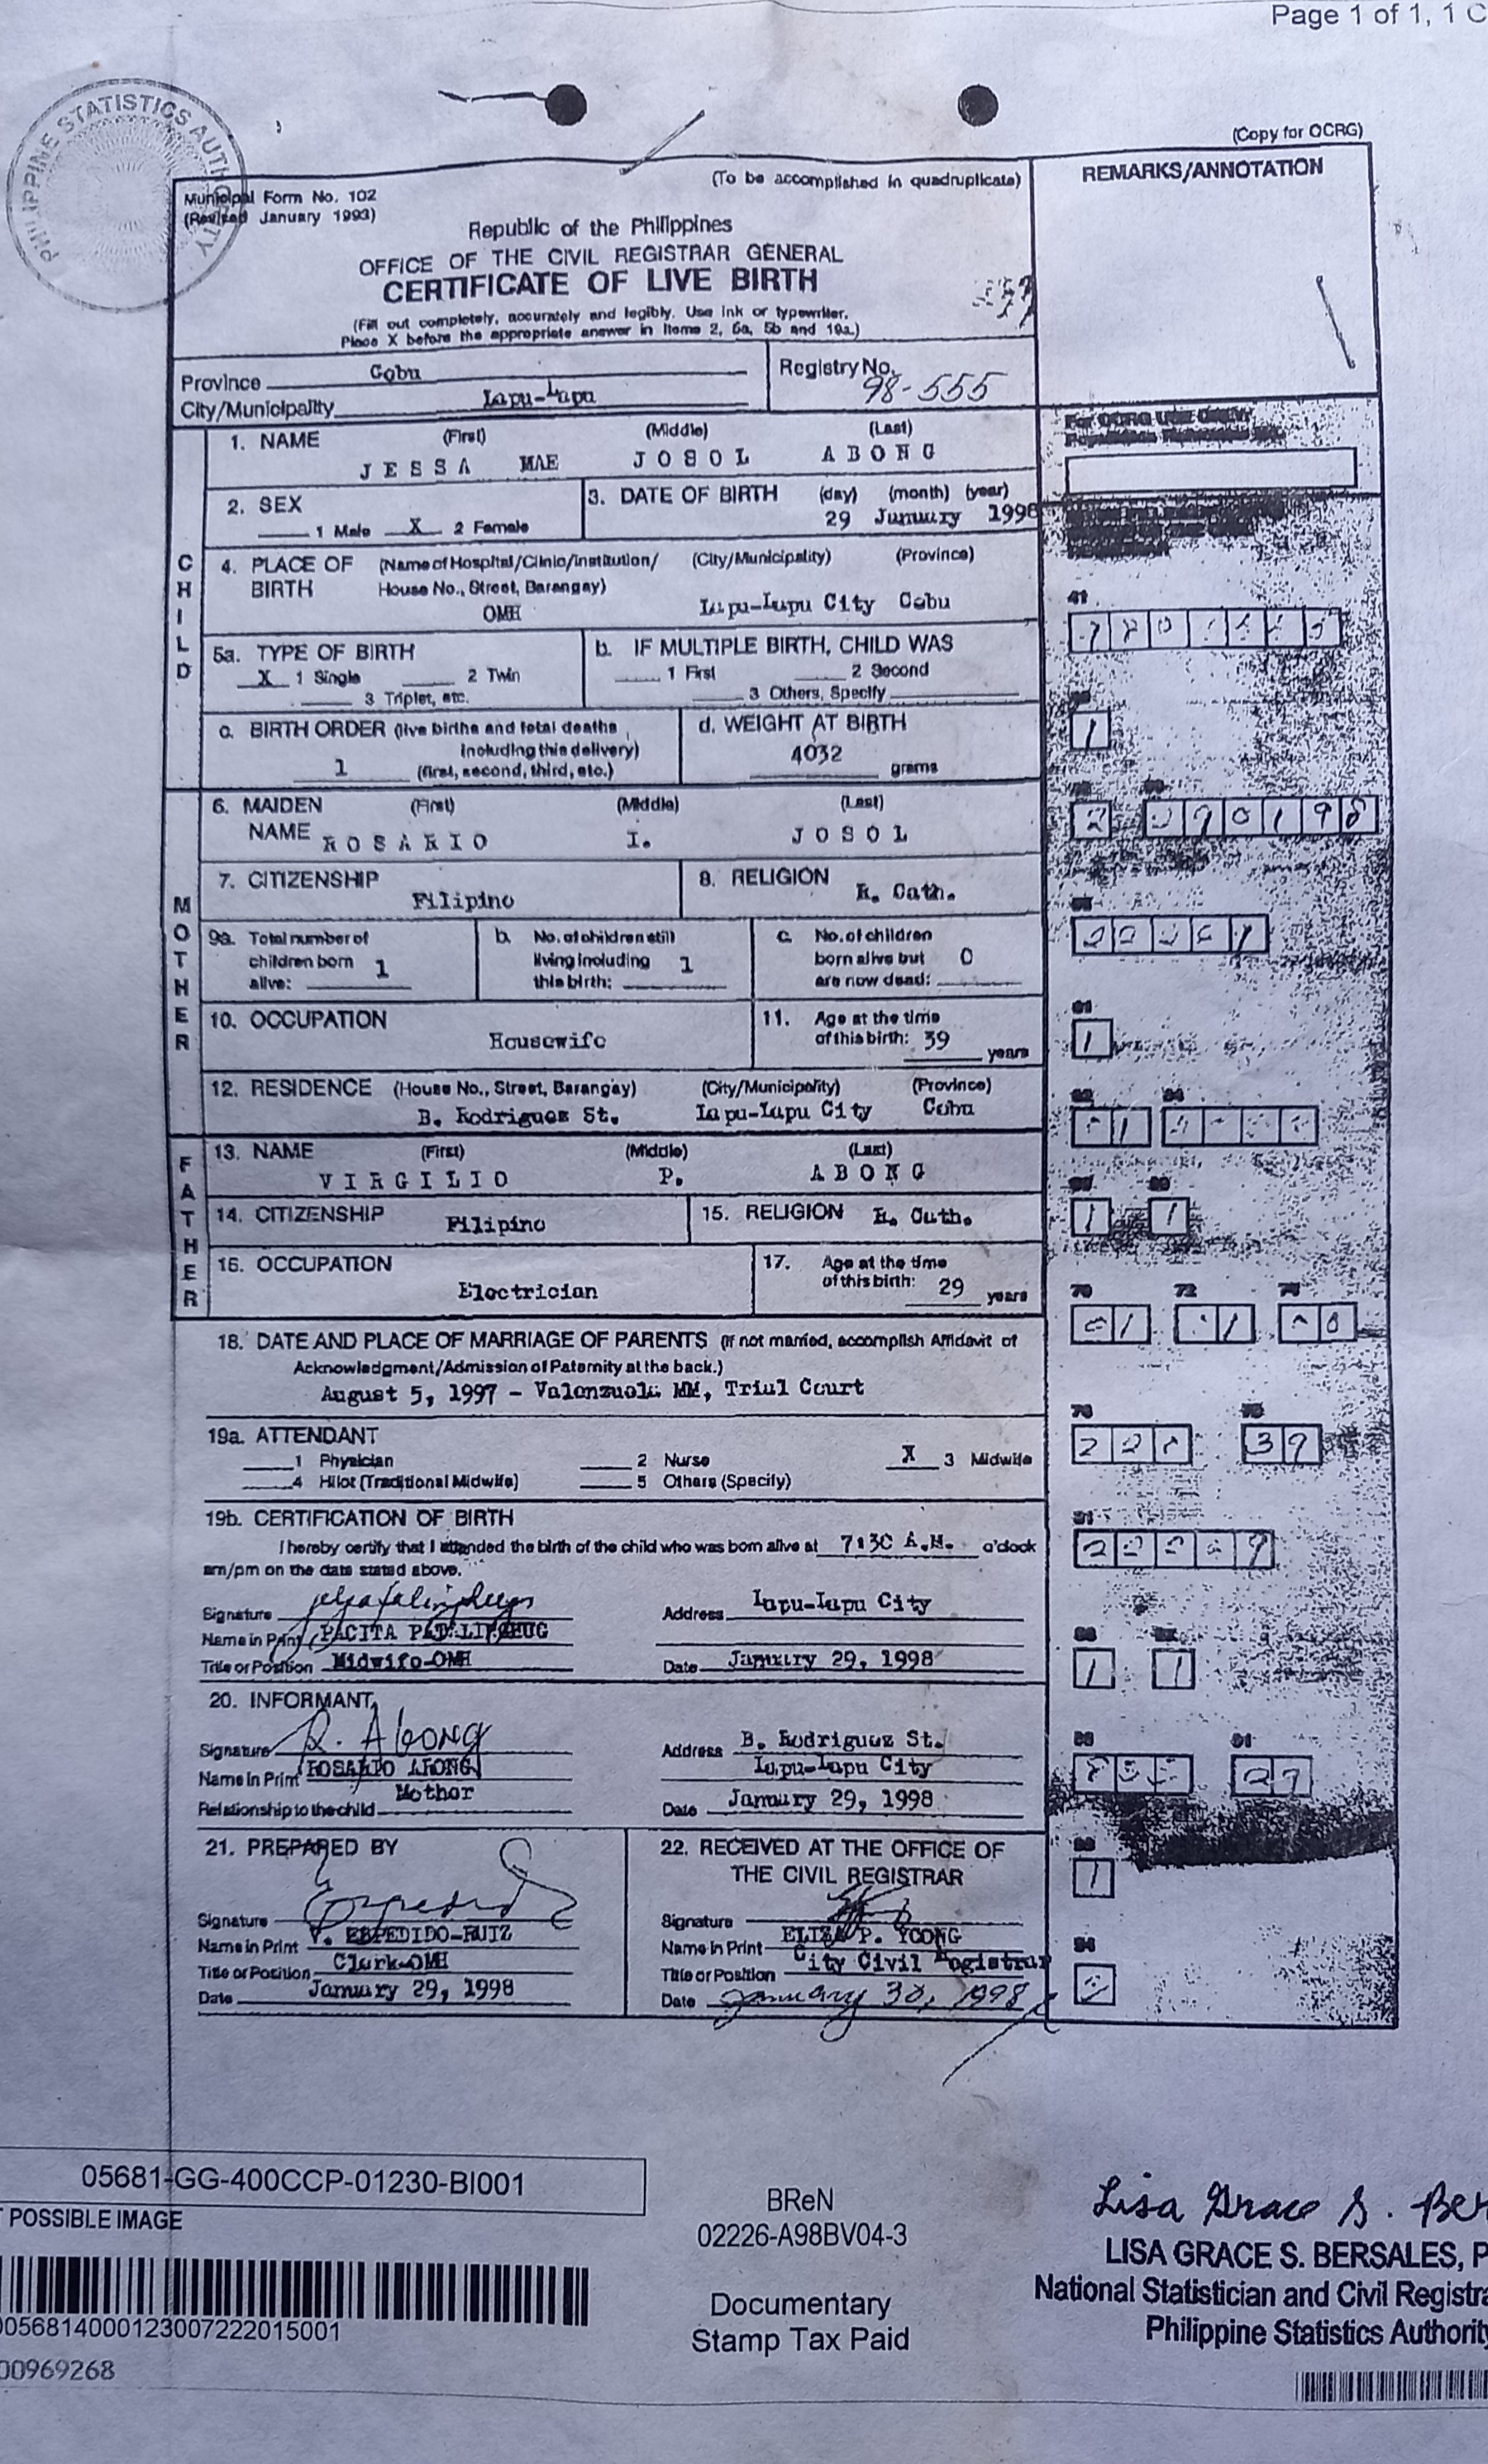 Page 1 of 1, 1 C
PHILIPPINE STATISTICS AUTHORITY
(Copy for OCRG)
Municipal Form No. 102
(Revised January 1993)
(To be accomplished in quadruplicate)
REMARKS/ANNOTATION
Republic of the Philippines
OFFICE OF THE CIVIL REGISTRAR GENERAL
CERTIFICATE OF LIVE BIRTH
(Fill out completely, accurately and legibly. Use ink or typewriter.
Place X before the appropriate answer in Items 2, 5a, 5b and 19a.)
Province Cebu
Registry No. 98-555
City/Municipality Lapu-Lapu
CHILD
1. NAME (First) (Middle) (Last)
JESSA MAE JOSOL ABONG
2. SEX
1 Male X 2 Female
3. DATE OF BIRTH (day) (month) (year)
29 January 1998
4. PLACE OF BIRTH (Name of Hospital/Clinic/Institution/ (City/Municipality) (Province)
House No., Street, Barangay)
OMH Lapu-Lapu City Cebu
41
5a. TYPE OF BIRTH
X 1 Single 2 Twin
3 Triplet, etc.
b. IF MULTIPLE BIRTH, CHILD WAS
1 First 2 Second
3 Others, Specify
c. BIRTH ORDER (live births and fetal deaths
including this delivery)
1 (first, second, third, etc.)
d. WEIGHT AT BIRTH
4032 grams
1
MOTHER
6. MAIDEN NAME (First) (Middle) (Last)
ROSARIO I. JOSOL
2 290198
7. CITIZENSHIP
Filipino
8. RELIGION
R. Cath.
9a. Total number of
children born
alive: 1
b. No. of children still
living including
this birth: 1
c. No. of children
born alive but
are now dead: 0
10. OCCUPATION
Housewife
11. Age at the time
of this birth: 39 years
1
12. RESIDENCE (House No., Street, Barangay) (City/Municipality) (Province)
B. Rodriguez St. Lapu-Lapu City Cebu
FATHER
13. NAME (First) (Middle) (Last)
VIRGILIO P. ABONG
14. CITIZENSHIP Filipino
15. RELIGION R. Cath.
1 1
16. OCCUPATION
Electrician
17. Age at the time
of this birth: 29 years
70 72
18. DATE AND PLACE OF MARRIAGE OF PARENTS (If not married, accomplish Affidavit of
Acknowledgment/Admission of Paternity at the back.)
August 5, 1997 - Valenzuela MM, Trial Court
19a. ATTENDANT
1 Physician 2 Nurse X 3 Midwife
4 Hilot (Traditional Midwife) 5 Others (Specify)
39
19b. CERTIFICATION OF BIRTH
I hereby certify that I attended the birth of the child who was born alive at 7:30 A.M. o'clock
am/pm on the date stated above.
Signature
Address Lapu-Lapu City
Name in Print PACITA
Title or Position Midwife-OMH
Date January 29, 1998
1 1
20. INFORMANT
Signature R. Abong
Address B. Rodriguez St.
Lapu-Lapu City
Name in Print ROSARIO ABONG
Relationship to the child Mother
Date January 29, 1998
21. PREPARED BY
Signature
Name in Print V. ESPEDIDO-RUIZ
Title or Position Clerk-OMH
Date January 29, 1998
22. RECEIVED AT THE OFFICE OF
THE CIVIL REGISTRAR
Signature
Name in Print ELIZA P. YCONG
Title or Position City Civil Registrar
Date January 30, 1998
1
05681-GG-400CCP-01230-BI001
POSSIBLE IMAGE
0056814000123007222015001
00969268
BReN
02226-A98BV04-3
Documentary
Stamp Tax Paid
Lisa Grace S. Ber
LISA GRACE S. BERSALES, P
National Statistician and Civil Registra
Philippine Statistics Authority